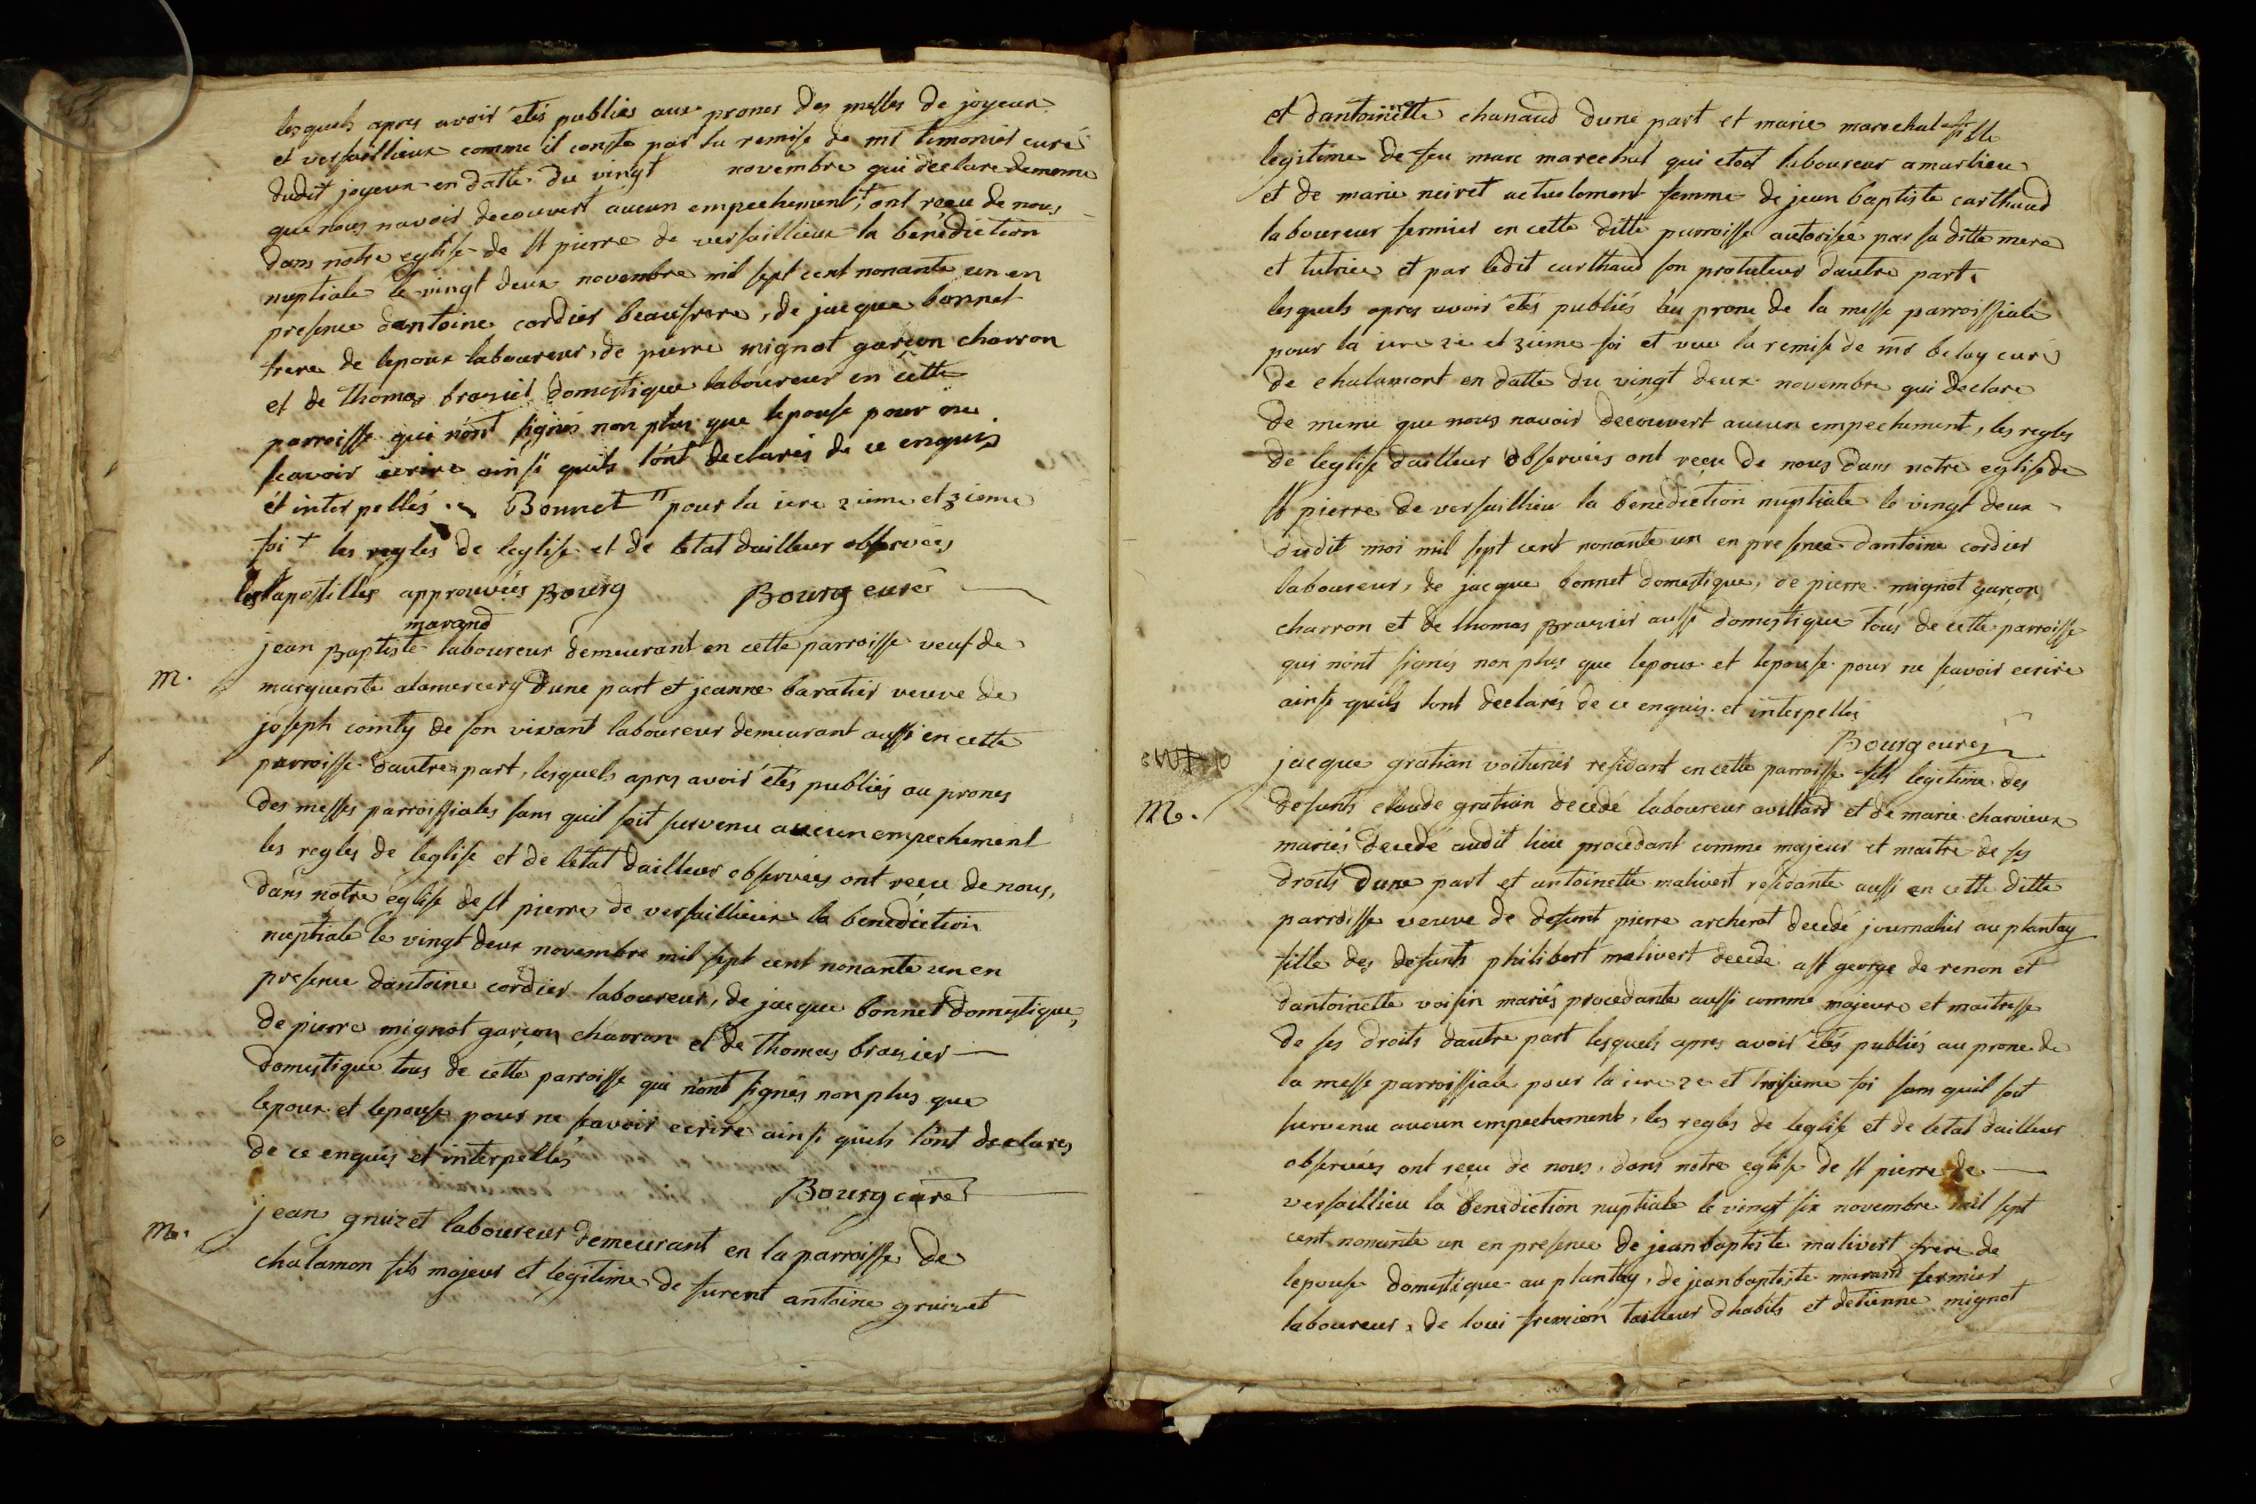 lesquels apres avoir étés publiés aux prones des messes de joyeux
et versaillieux comme il conste par la remise de mr limonier curé
dudit joyeux en datte du vingt novembre qui declare de meme
que nous navoir decouvert aucun empechement,+ ont reçu de nous
dans notre eglise de st pierre de versaillieux la benediction
nuptiale le vingt deux novembre mil sept cent nonante un en
presence dantoine cordier beaufrere, de jacque bonnet
frere de lepoux laboureur, de pierre mignot garçon charron
et de thomas brazier domestique laboureur en cette
parroisse qui nónt signés non plus que lepouse pour ne
scavoir ecrire ainsi quils lónt declarés de ce enquis
ét interpellés. Bonnet " pour la iere 2ieme et 3ieme
foi + les regles de leglise et de letat dailleur observées
les apostilles approuvées Bourg Bourg curé
marand
jean Baptiste laboureur demeurant en cette parroisse veuf de
M. marguerite alamercery dune part et jeanne baratier veuve de
joseph cointy de son vivant laboureur demeurant aussi en cette
parroisse dautre part, lesquels apres avoir étés publiés au prones
des messes parroissiales sans quil soit survenu aucun empechement
les regles de leglise et de letat dailleur observées ont reçu de nous,
dans notre église de st pierre de versaillieux la benediction
nuptiale le vingt deux novembre mil sept cent nonante un en
presence dantoine cordier laboureur, de jacque bonnet domestique,
de pierre mignot garçon charron et de thomas brazier
domestique tous de cette parroisse qui nont signés non plus que
lepoux et lepouse pour ne scavoir ecrire ainsi quils lónt declarés
de ce enquis et interpellés
Bourg curé
jean gruizet laboureur demeurant en la parroisse de
M. chalamon fils majeur et legitime de furent antoine gruizet
et dantoinette chanaud dune part et marie marechal fille
legitime de feu marc marechal qui etoit laboureur a marlieu
et de marie neiret actuelement femme de jean baptiste carthaud
laboureur fermier en cette ditte parroisse autorisée par sa ditte mere
et tutrice et par ledit carthaud son protuteur dautre part
lesquels apres avoir étés publiés au prone de la messe parroissiale
pour la iere 2e et 3ieme foi et veu la remise de mr belay curé
de chalamont en datte du vingt deux novembre qui declare
de meme que nous navoir decouvert aucun empechement, les regles
de leglise dailleur observées ont reçu de nous dans notre eglise de
st pierre de versaillieu la benediction nuptiale le vingt deux
dudit moi mil sept cent nonante un en presence dantoine cordier
laboureur, de jacque bonnet domestique, de pierre mignot garçon
charron et de thomas Brazier aussi domestique tous de cette parroisse
qui nónt signés non plus que lepoux et lepouse pour ne scavoir ecrire
ainsi quils lont declarés de ce enquis et interpellés
Bourg curé
jacque gratian voiturier residant en cette parroisse fils legitime des
M. defunts claude gratian decedé laboureur avillard et de marie charvieux
mariés decedé audit lieu procedant comme majeur et maitre de ses
droits dune part et antoinette malivert residante aussi en cette ditte
parroisse veuve de defunt pierre archerat decedé journalier au plantay
fille des defunts philibert malivert decedé a st george de renon et
dantoinette voisin mariés procedante aussi comme majeure et maitresse
de ses droits dautre part lesquels apres avoir étés publiés au prone de
la messe parroissiale pour la iere 2e et troisieme foi sans quil soit
survenu aucun empechement, les regles de leglise et de letat dailleur
observées ont reçu de nous, dans notre eglise de st pierre de
versaillieu la benediction nuptiale le vingt six novembre mil sept
cent nonante un en presence de jean baptiste malivert frere de
lepouse domestique au plantay, de jean baptiste marand fermier
laboureur, de loui fremion tailleur dhabits et detienne mignot